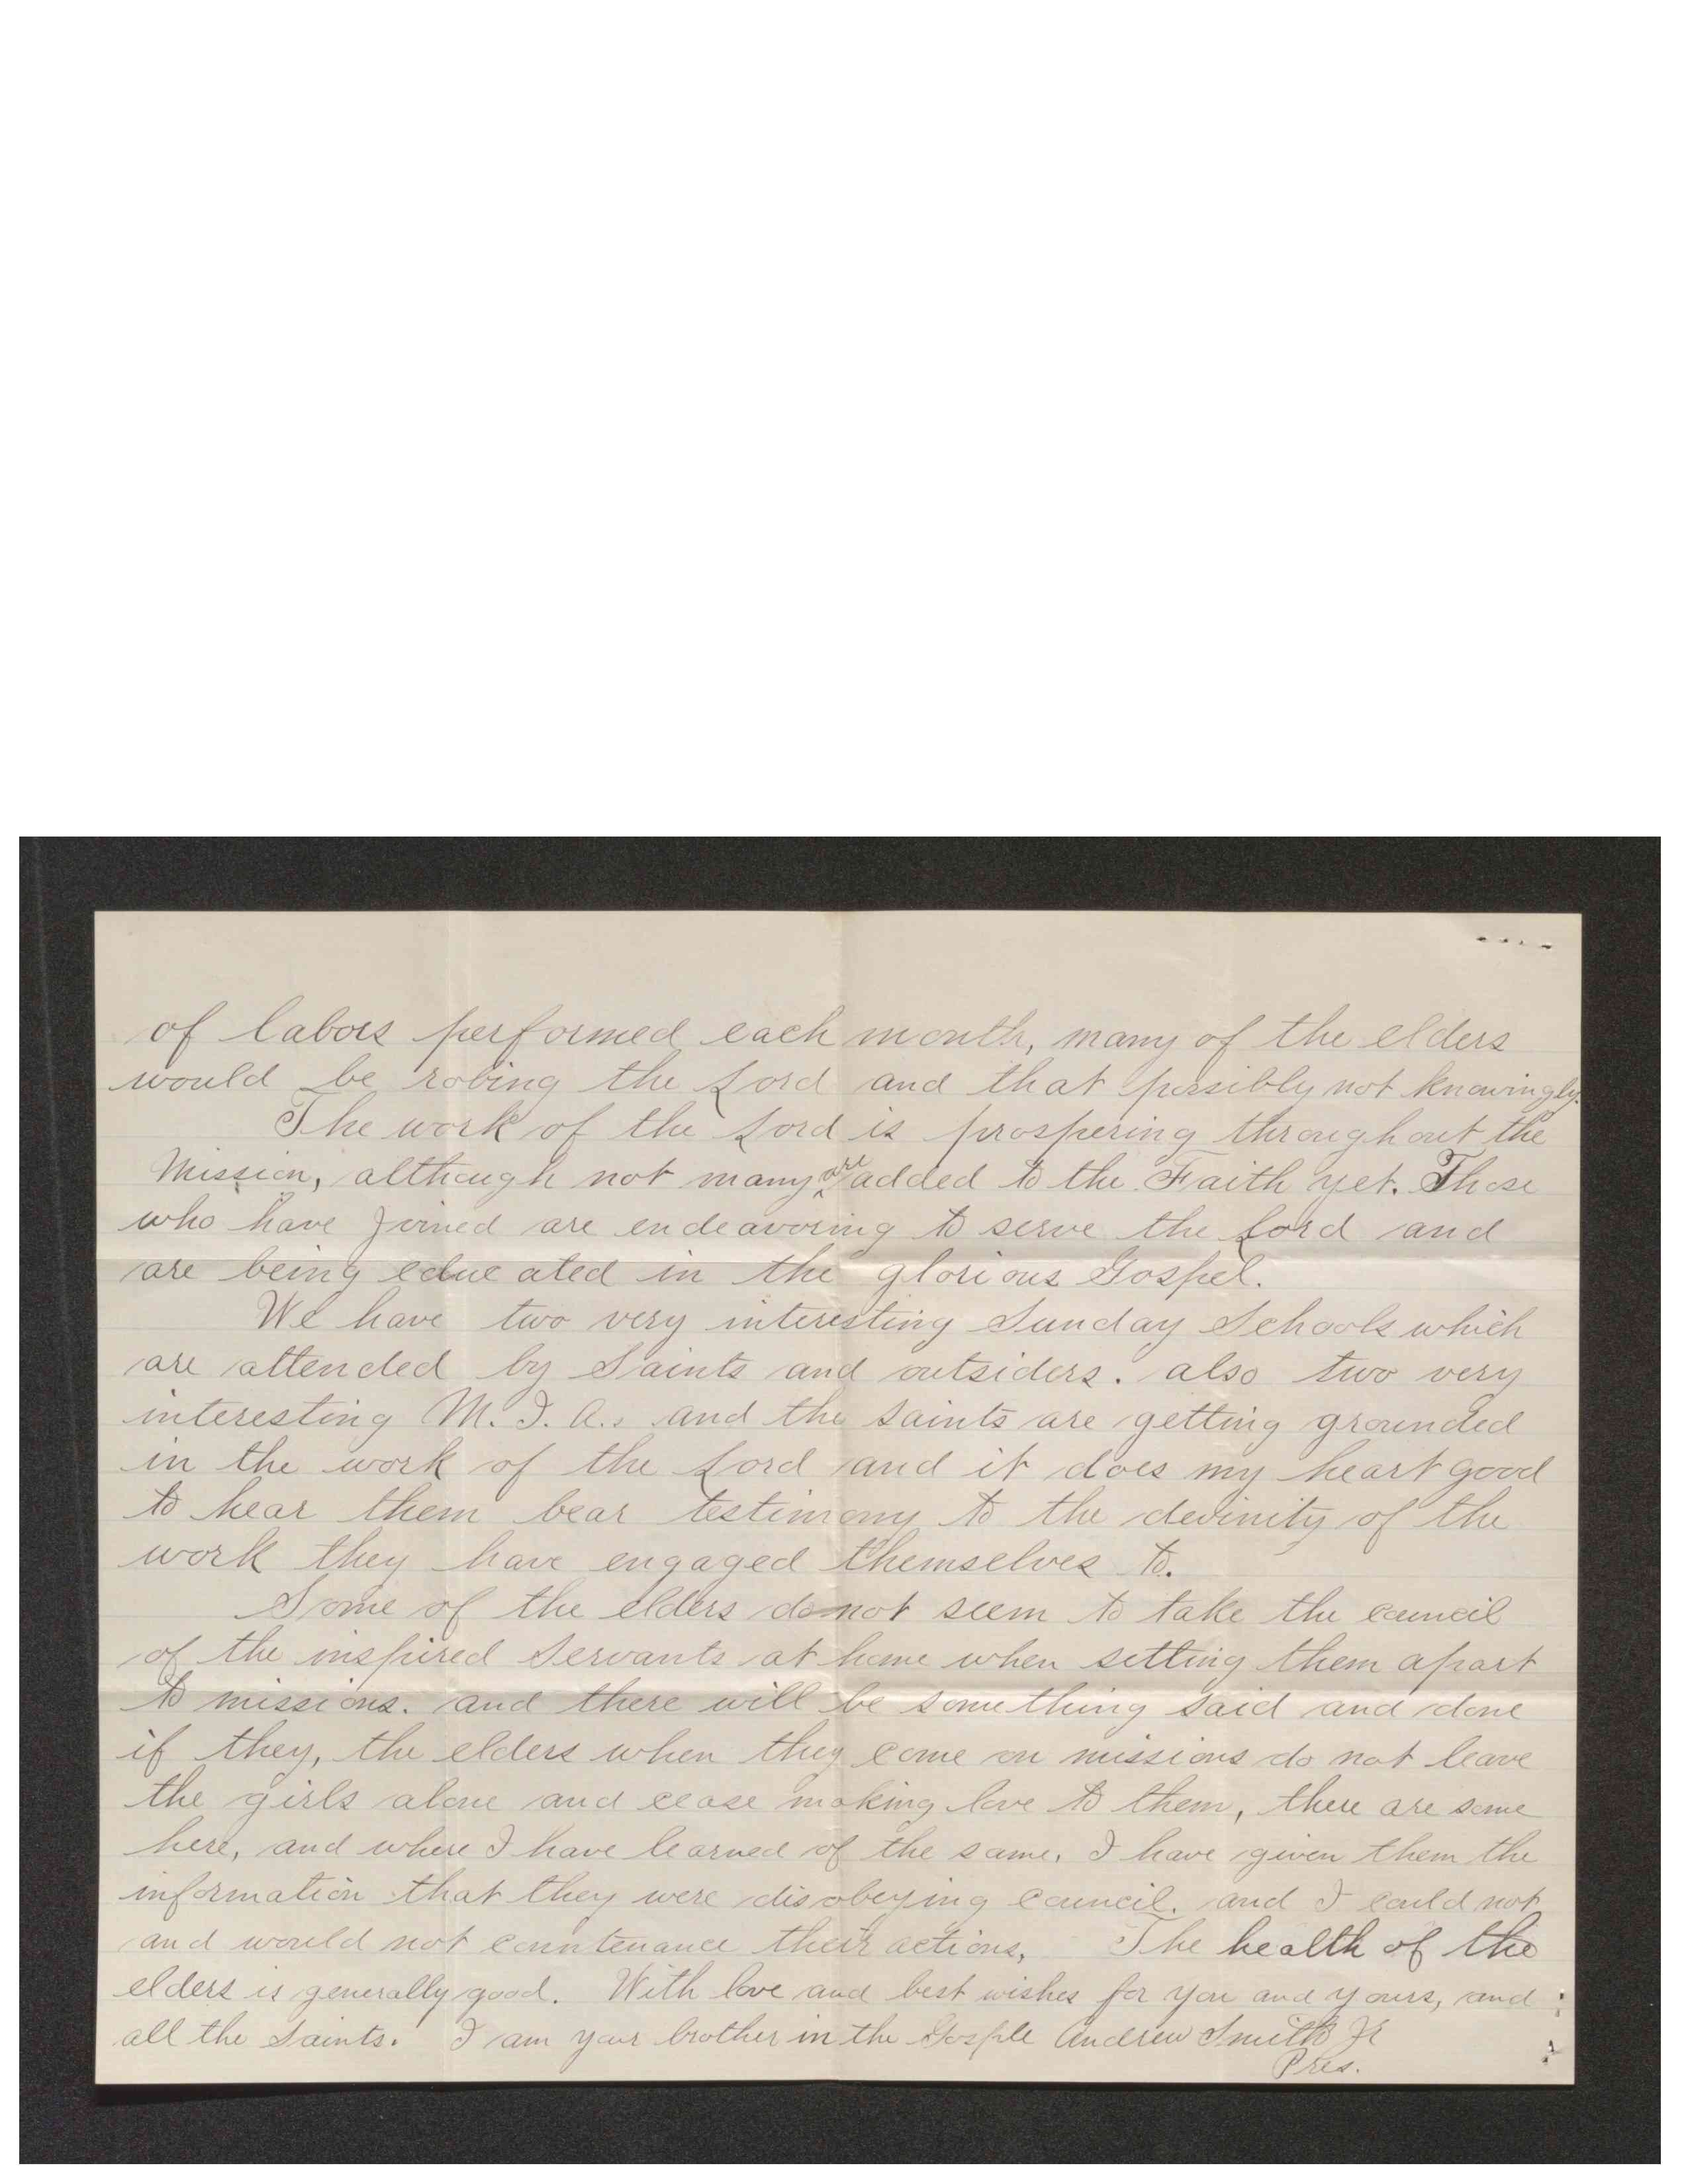 of labors performed each month, many of the elders
would be robing the Lord and that possibly not knowingly.
The work of the Lord is prospering throughout the
Mission, although not many are added to the Faith yet. Those
who have joined are endeavoring to serve the Lord and
are being educated in the glorious Gospel.
We have two very interesting Sunday Schools which
are attended by Saints and outsiders. also two very
interesting M. I. A.s and the saints are getting grounded
in the work of the Lord and it does my heart good
to hear them bear testimony to the devinity of the
work they have engaged themselves to.
Some of the elders do not seem to take the council
of the inspired Servants at home when setting them apart
to missions. and there will be something said and done
if they, the elders when they come on missions do not leave
the girls alone and cease making love to them, there are some
here, and where I have learned of the same, I have given them the
information that they were disobeying council. and I could not
and would not countenance their actions. The health of the
elders is generally good. With love and best wishes for you and yours, and
all the Saints. I am your brother in the Gosple Andrew Smith Jr
Pres.